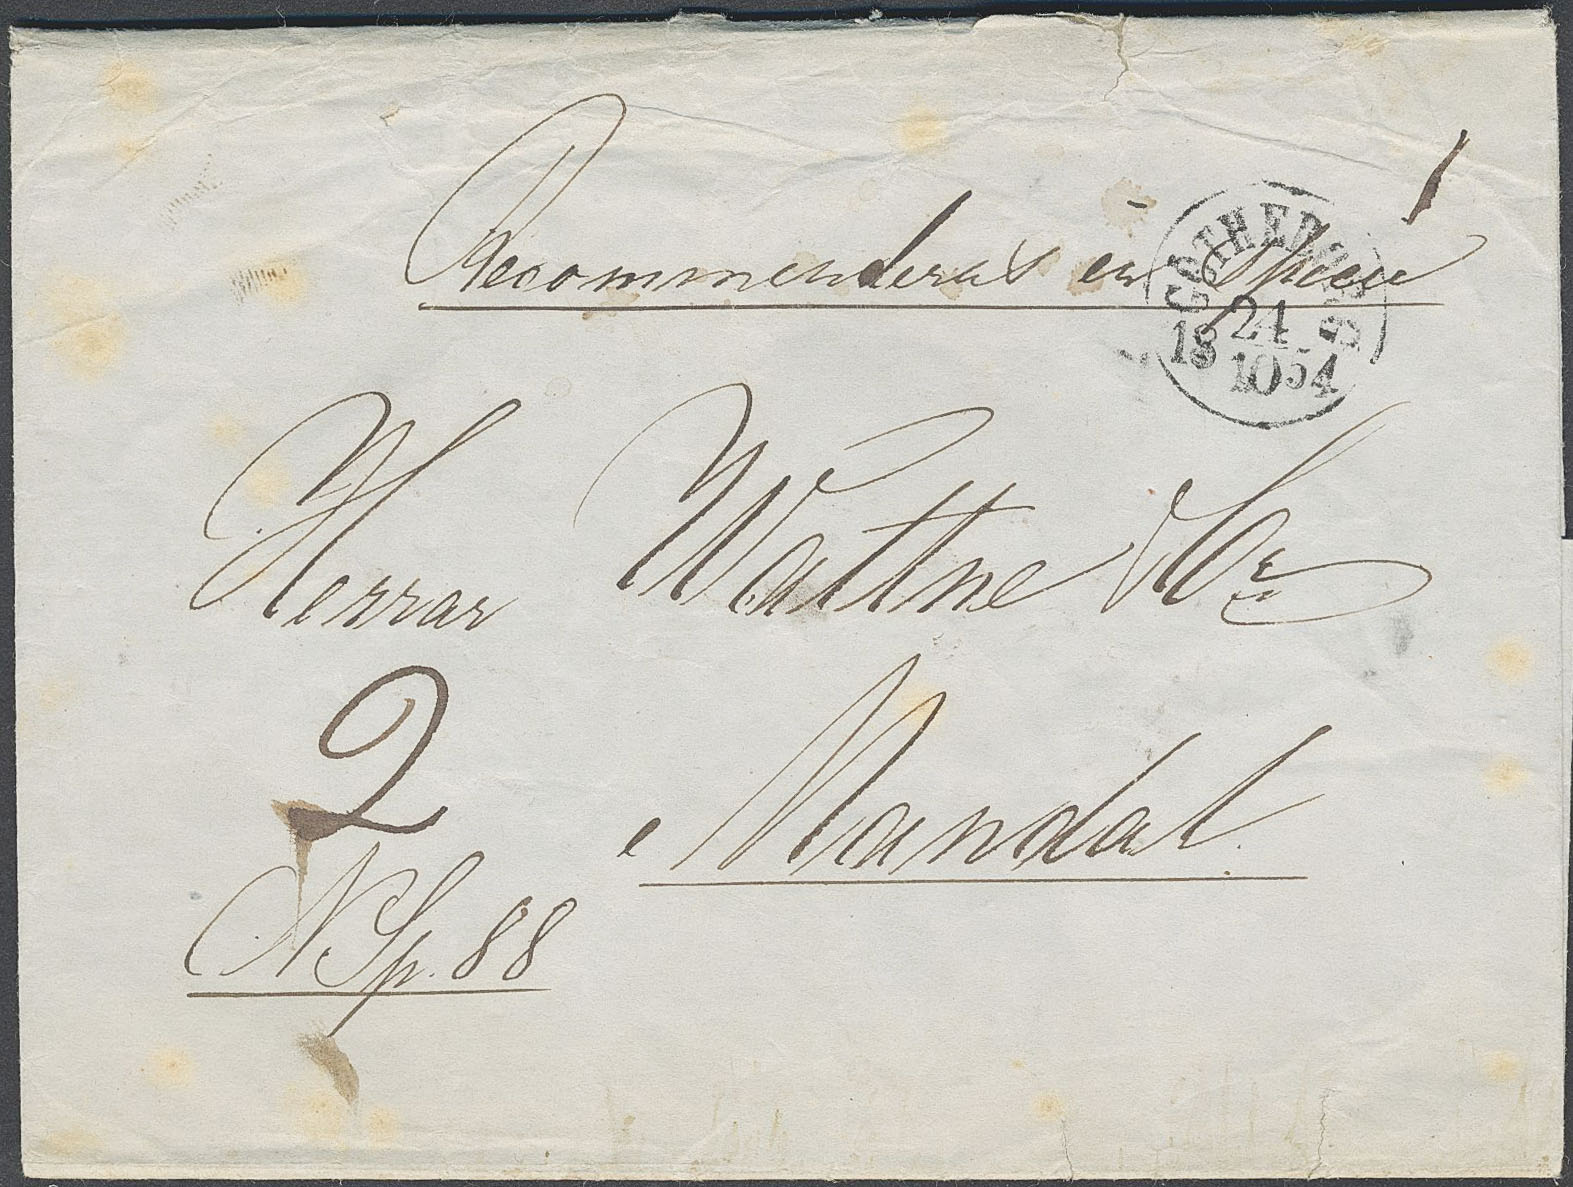 1
Recommenderas en Specie
GOTHEBORG
24
18 10 54
Herrar Wattne & Co
2
Mandal
N Sp. 88